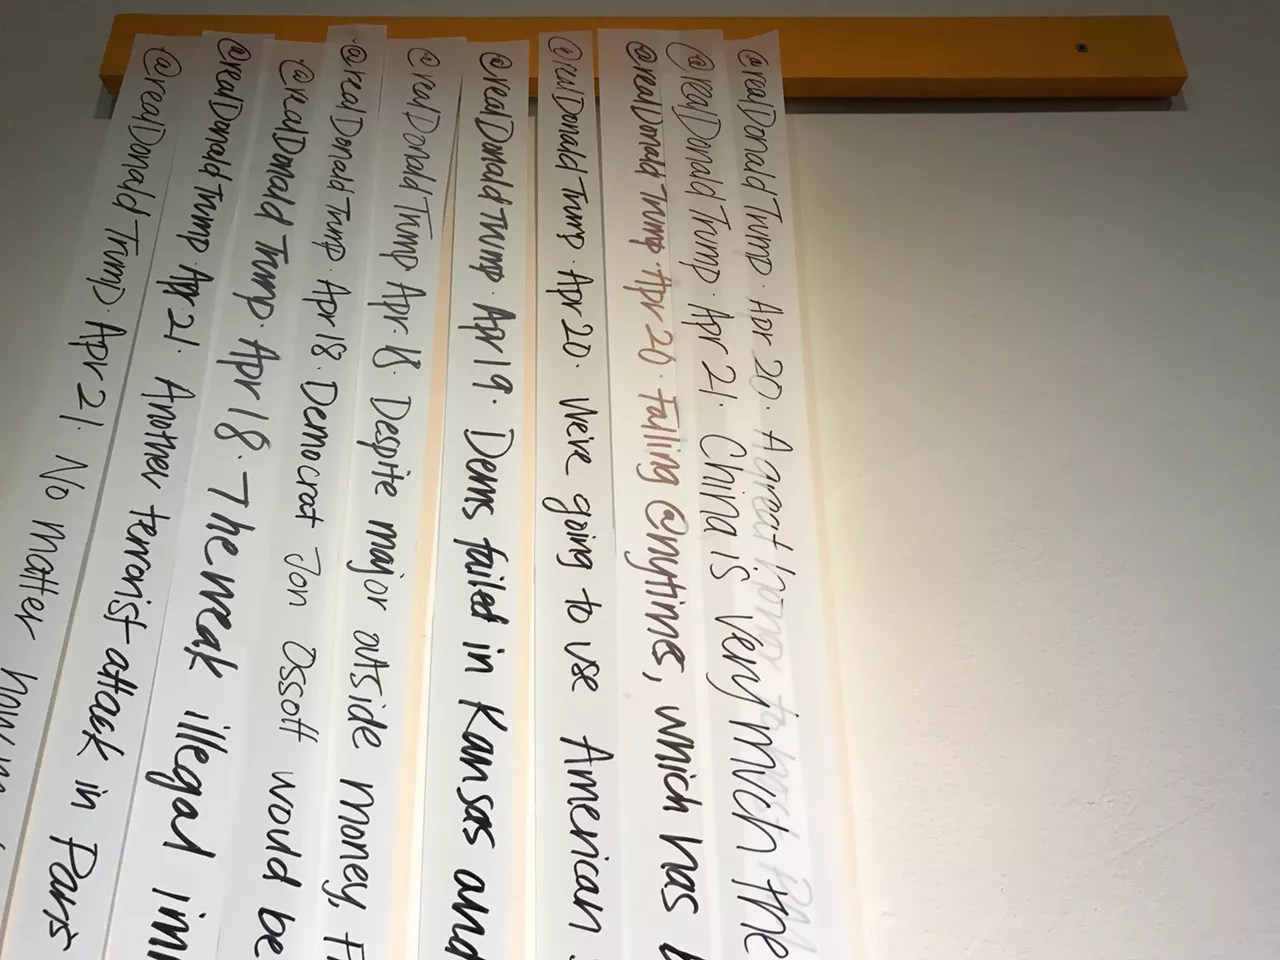 @realDonaldTrump · Apr 21 · No matter how
@realDonaldTrump · Apr 21 · Another terrorist attack in Paris
@realDonaldTrump · Apr 18 · The weak illegal imm
@realDonaldTrump · Apr 18 · Democrat Jon Ossoff would be
@realDonaldTrump · Apr 18 Despite major outside money, F
@realDonaldTrump · Apr 19 · Dems failed in Kansas and
@realDonaldTrump · Apr 20 · We're going to use American
@realDonaldTrump · Apr 20 · Failing @nytimes, which has
@realDonaldTrump · Apr 21 · China is very much the
@realDonaldTrump · Apr 20 · A great honor to host